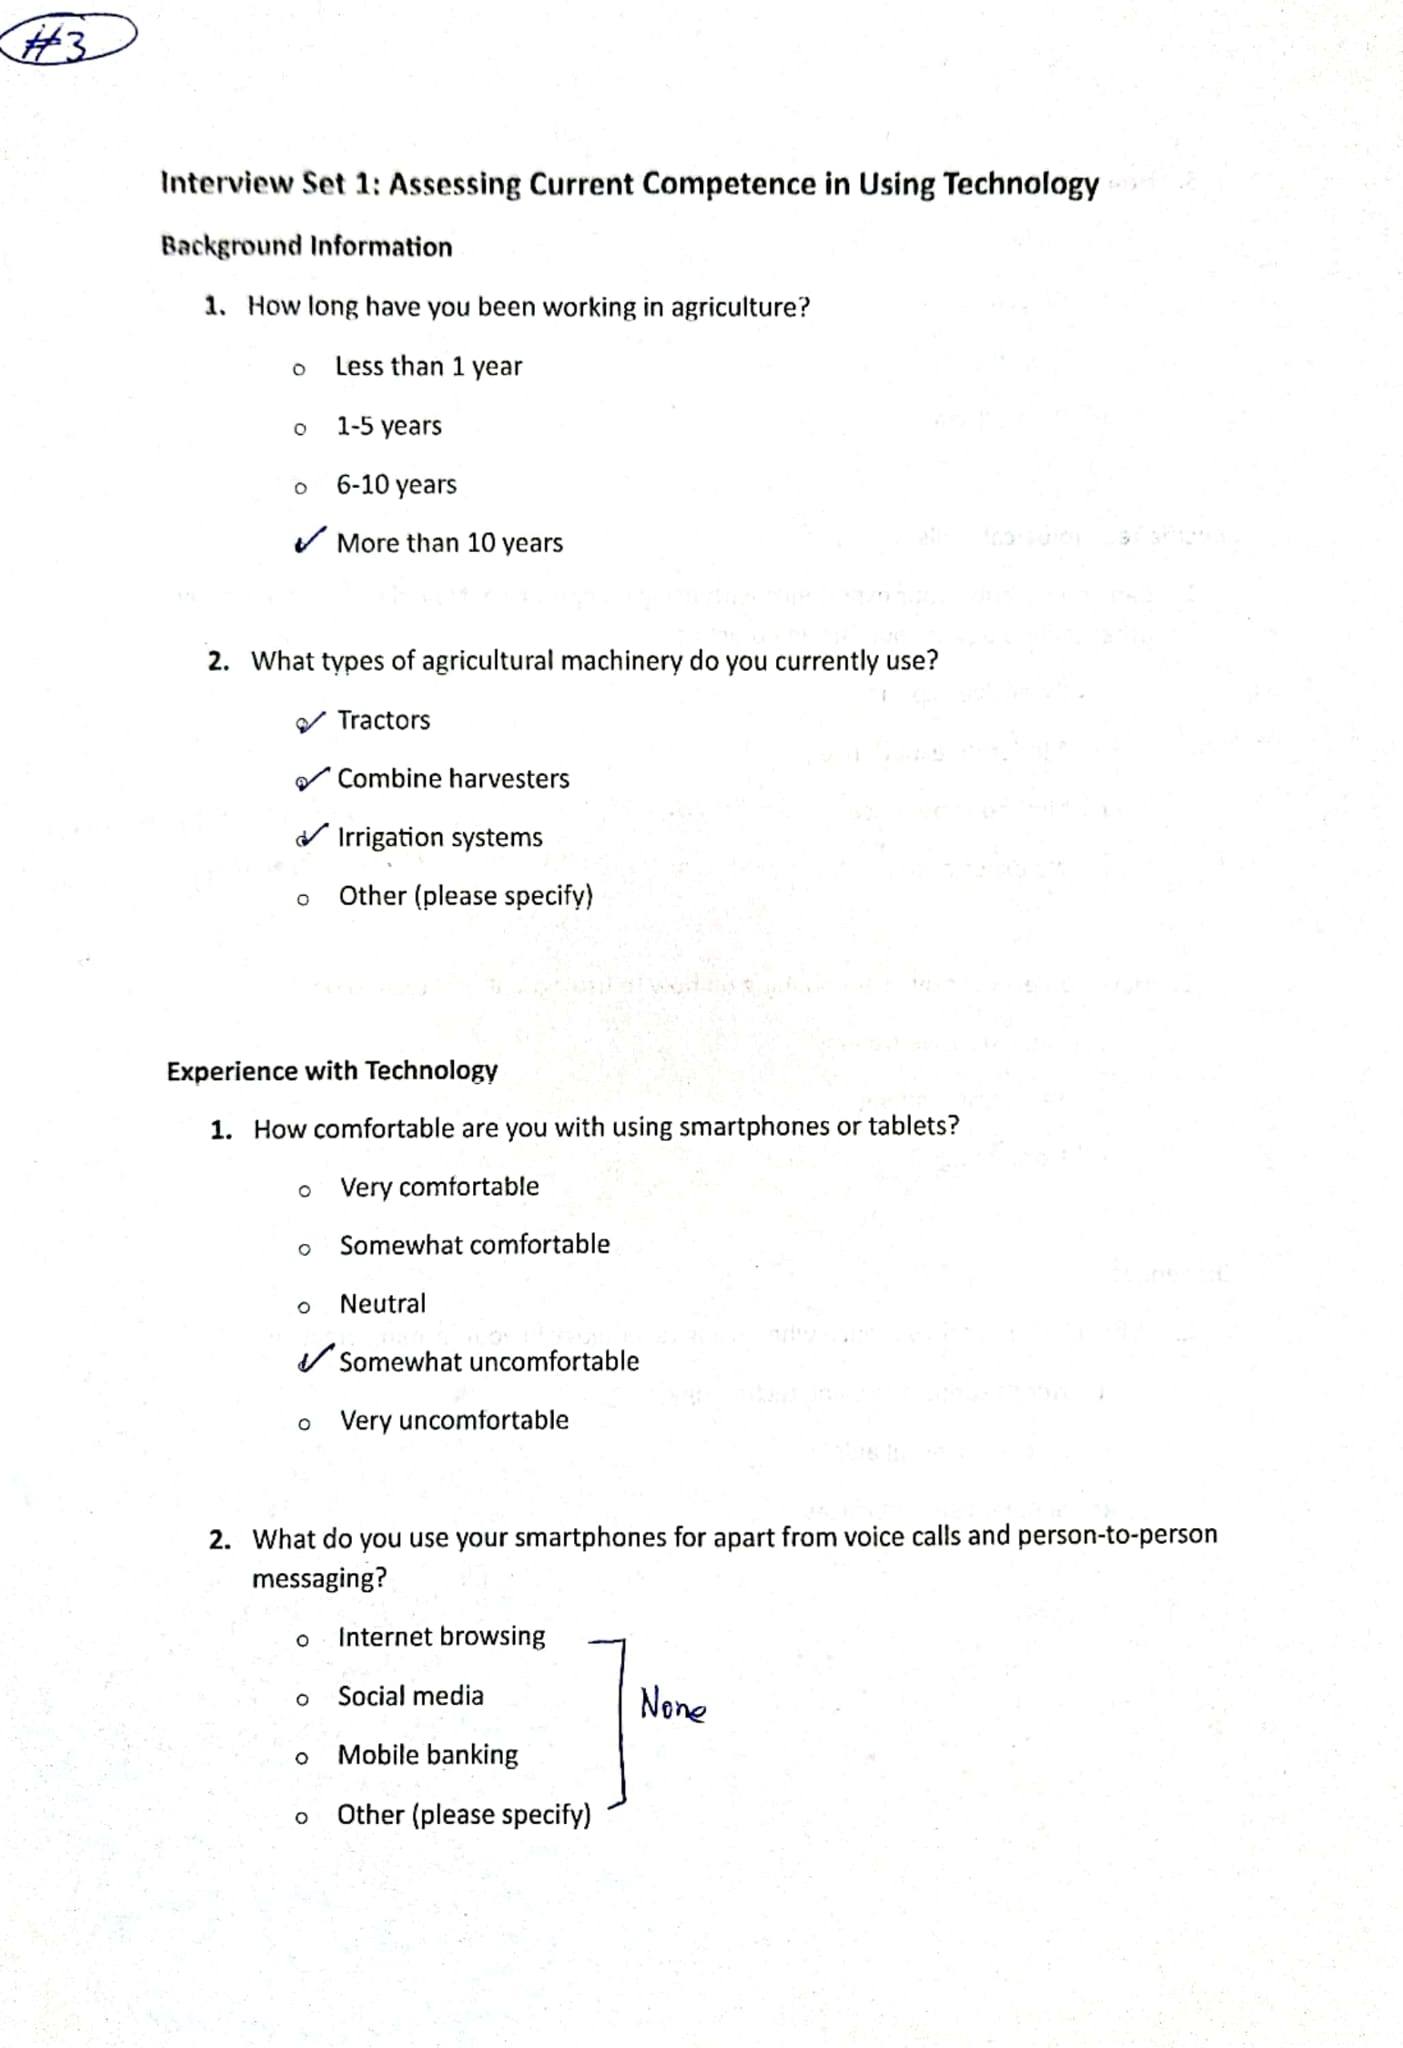 #3
Interview Set 1: Assessing Current Competence in Using Technology
Background Information
1. How long have you been working in agriculture?
o Less than 1 year
o 1-5 years
o 6-10 years
✓ More than 10 years
2. What types of agricultural machinery do you currently use?
✓ Tractors
✓ Combine harvesters
✓ Irrigation systems
o Other (please specify)
Experience with Technology
1. How comfortable are you with using smartphones or tablets?
o Very comfortable
o Somewhat comfortable
o Neutral
✓ Somewhat uncomfortable
o Very uncomfortable
2. What do you use your smartphones for apart from voice calls and person-to-person
messaging?
o Internet browsing
o Social media
None
o Mobile banking
o Other (please specify)